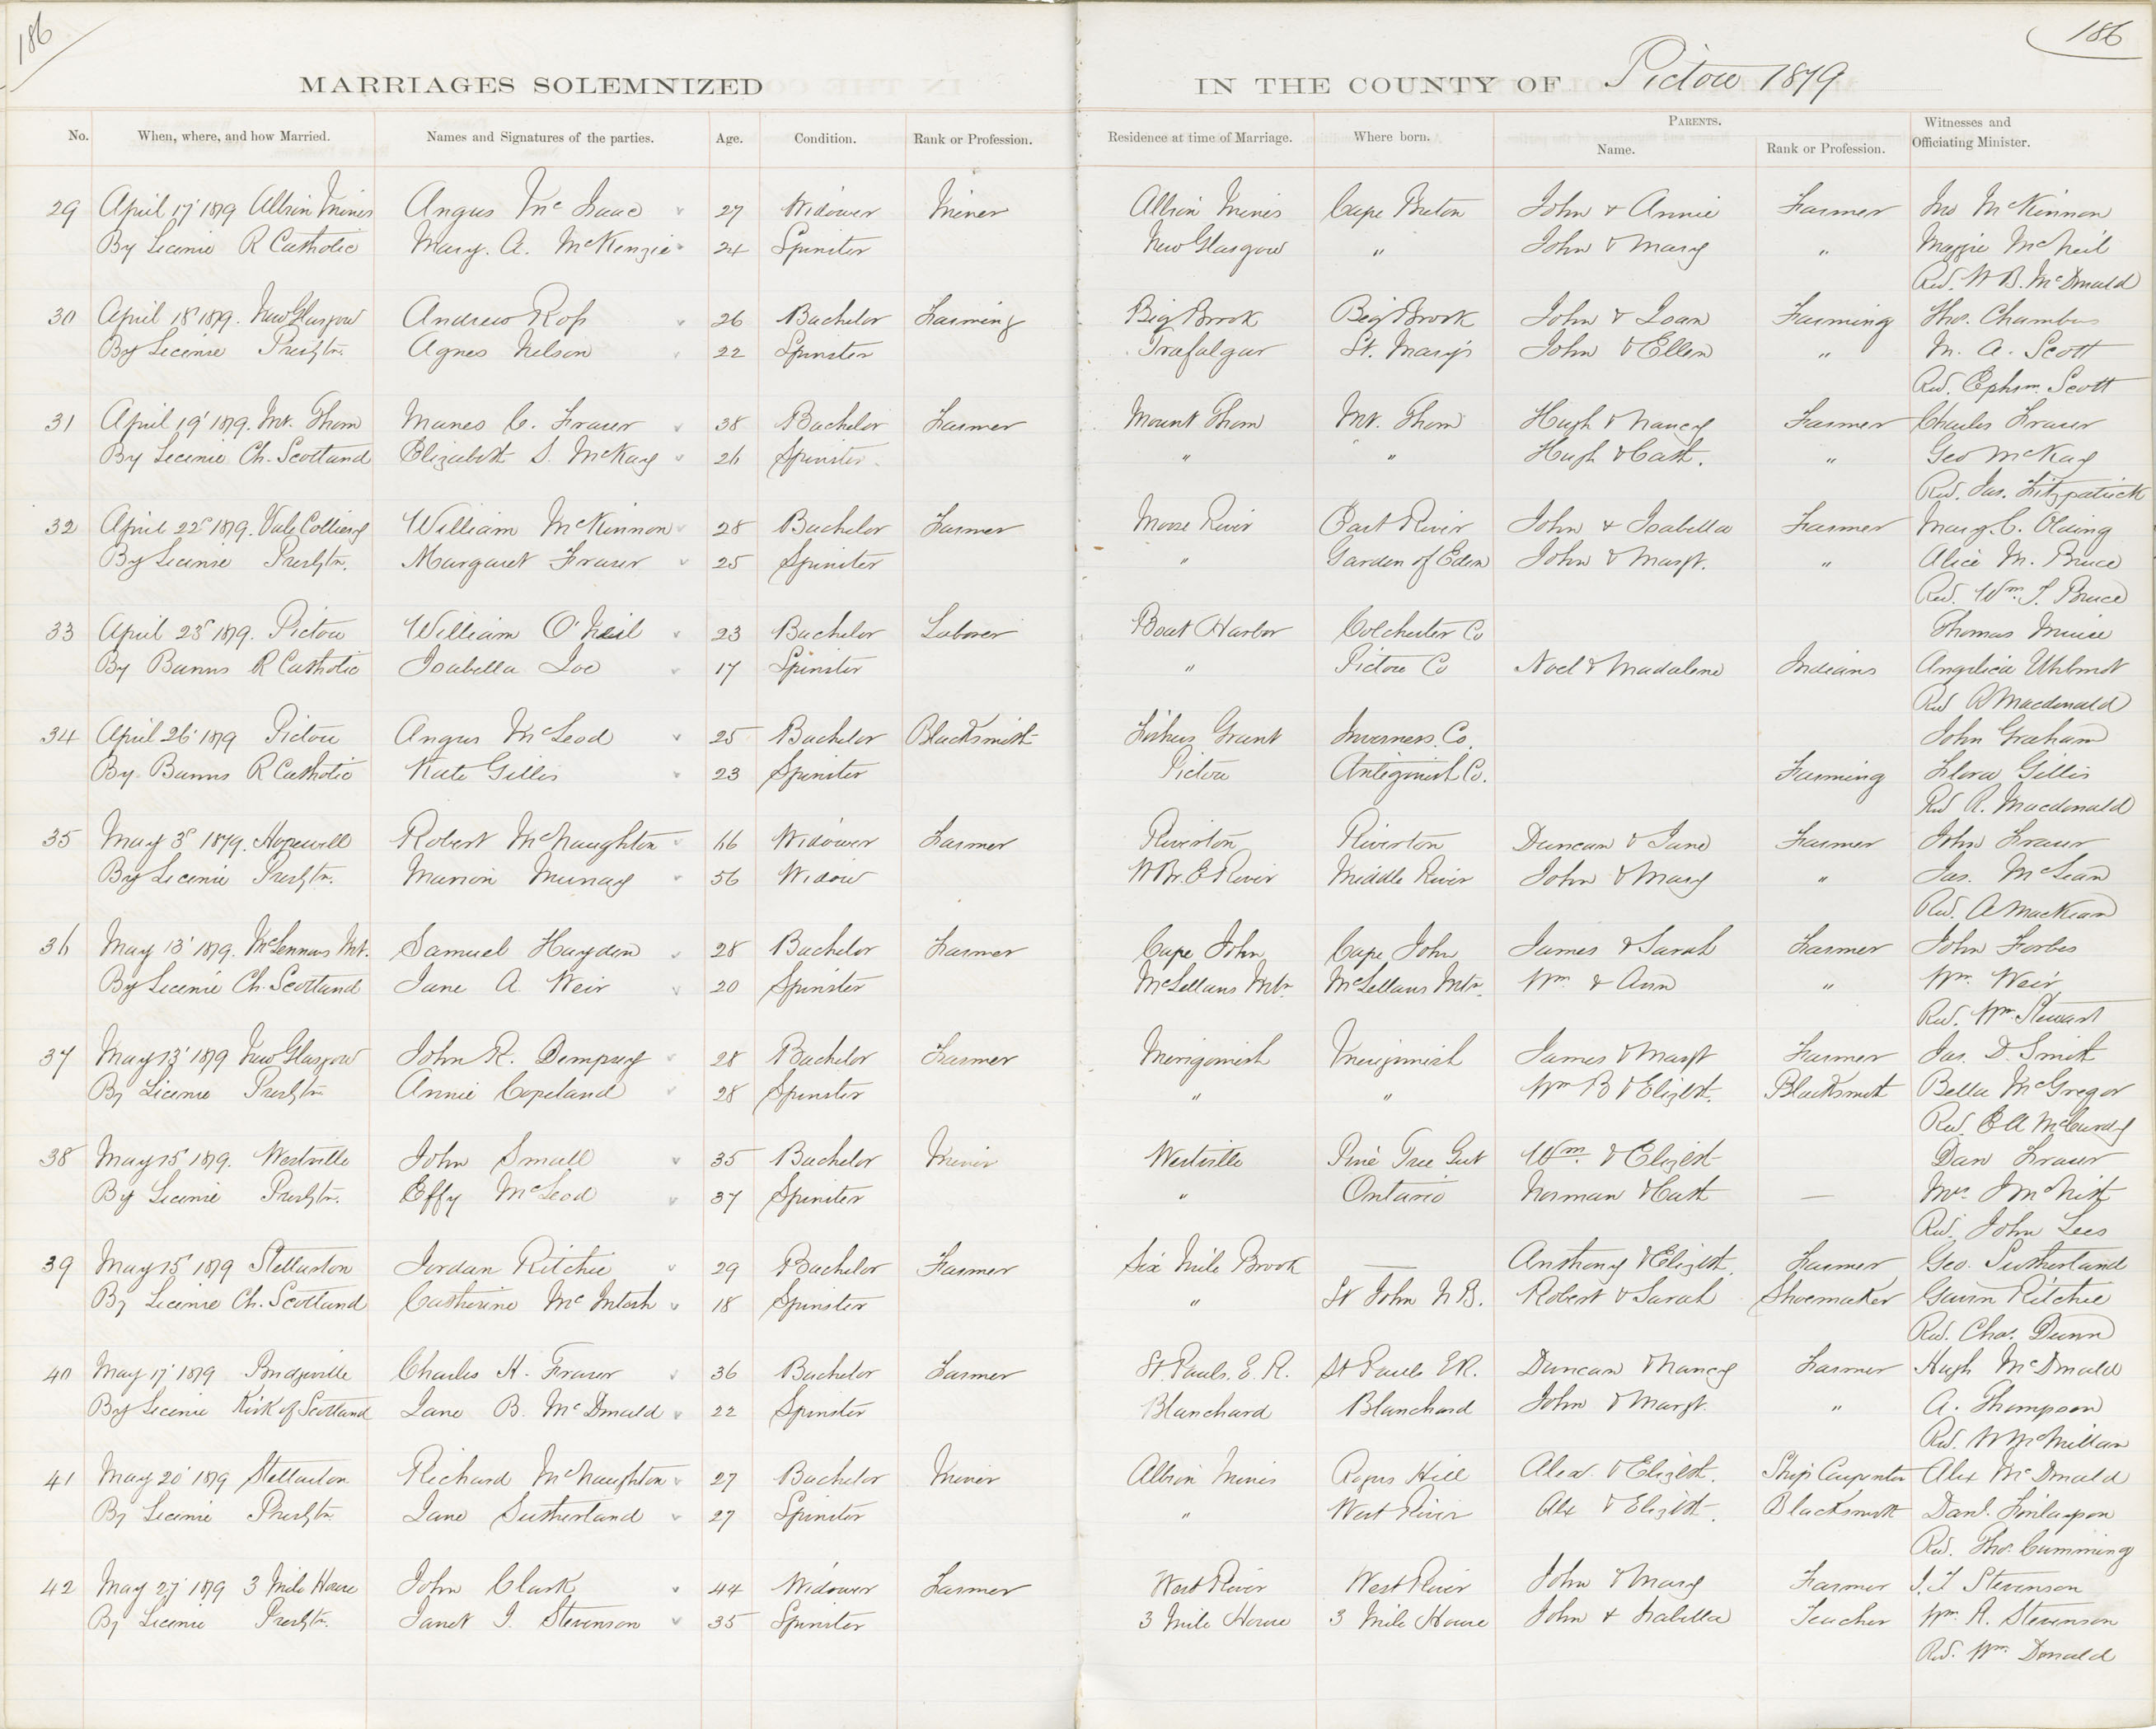 186
186
MARRIAGES SOLEMNIZED IN THE COUNTY OF Pictou 1879
No. When, where, and how Married. Names and Signatures of the parties. Age. Condition. Rank or Profession. Residence at time of Marriage. Where born. PARENTS. Name. Rank or Profession. Witnesses and Officiating Minister.
29 April 17' 1879 Albion Mines Angus Mc Isaac 27 Widower Miner Albion Mines Cape Breton John & Annie Farmer Jno McKinnon
By License R Catholic Mary. A. McKenzie 24 Spinster New Glasgow " John & Mary " Maggie McNeil
Rev. W B. McDonald
30 April 18' 1879. New Glasgow Andrew Ross 26 Bachelor Farming Big Brook Big Brook John & Joan Farming Thos. Chambers
By License Presbytn. Agnes Nelson 22 Spinster Trafalgar St. Mary's John & Ellen " M. A. Scott
Rev. Ephm. Scott
31 April 19' 1879. Mt. Thom Manes C. Fraser 38 Bachelor Farmer Mount Thom Mt. Thom Hugh & Nancy Farmer Charles Fraser
By License Ch. Scotland Elizabeth S. McKay 26 Spinster " " Hugh & Cath. " Geo McKay
Rev. Jas. Fitzpatrick
32 April 22d 1879. Vale Colliery William McKinnon 28 Bachelor Farmer Moose River East River John & Isabella Farmer Mary C. Olding
By License Presbytn. Margaret Fraser 25 Spinster " Garden of Eden John & Margt. " Alice M. Bruce
Rev. Wm. T. Bruce
33 April 23d 1879. Pictou William O'Neil 23 Bachelor Laborer Boat Harbor Colchester Co Thomas Muise
By Banns R Catholic Isabella Joe 17 Spinster " Pictou Co Noel & Madalene Indians Angelica
Rev R Macdonald
34 April 26' 1879 Pictou Angus McLeod 25 Bachelor Blacksmith Fishers Grant Inverness Co. John Graham
By Banns R Catholic Kate Gillis 23 Spinster Pictou Antigonish Co. Farming Flora Gillis
Rev R. Macdonald
35 May 3d 1879. Hopewell Robert McNaughton 66 Widower Farmer Riverton Riverton Duncan & Jane Farmer John Fraser
By License Presbytn. Marion Murray 56 Widow W Br. E River Middle River John & Mary " Jas. McLean
Rev. A MacKean
36 May 13' 1879. McLennans Mt. Samuel Hayden 28 Bachelor Farmer Cape John Cape John James & Sarah Farmer John Forbes
By License Ch. Scotland Jane A. Weir 20 Spinster McLellans Mtn. McLellans Mtn. Wm & Ann " Wm. Weir
Rev. Wm. Stewart
37 May 13' 1879 New Glasgow John R. Dempsey 28 Bachelor Farmer Merigomish Merigomish James & Margt Farmer Jas. D. Smith
By License Presbytn Annie Copeland 28 Spinster " " Wm B & Elizbt. Blacksmith Bella McGregor
Rev. E A McCurdy
38 May 15' 1879. Westville John Small 35 Bachelor Miner Westville Pine Tree Gut Wm. & Elizbt Dan Fraser
By License Presbytn. Effy McLeod 37 Spinster " Ontario Norman & Cath — Mrs J McNish
Rev. John Lees
39 May 15' 1879 Stellarton Jordan Ritchie 29 Bachelor Farmer Six Mile Brook — Anthony & Elizbt. Farmer Geo. Sutherland
By License Ch. Scotland Catherine Mc Intosh 18 Spinster " St John N B. Robert & Sarah Shoemaker Gavin Ritchie
Rev. Chas. Dunn
40 May 17' 1879 Bridgeville Charles H. Fraser 36 Bachelor Farmer St Pauls. E. R. St Pauls ER. Duncan & Nancy Farmer Hugh McDonald
By License Kirk of Scotland Jane B. McDonald 22 Spinster Blanchard Blanchard John & Margt. " A. Thompson
Rev. W McMillan
41 May 20' 1879 Stellarton Richard McNaughton 27 Bachelor Miner Albion Mines Rogers Hill Alex. & Elizbt. Ship Carpenter Alex McDonald
By License Presbytn Jane Sutherland 27 Spinster " West River Alex & Elizbt. Blacksmith Danl. Finlayson
Rev. Thos. Cumming
42 May 27' 1879 3 Mile House John Clark 44 Widower Farmer West River West River John & Mary Farmer J. T Stevenson
By License Presbytn. Janet I. Stevenson 35 Spinster 3 Mile House 3 Mile House John & Isabella Teacher Wm. A. Stevenson
Rev. Wm. Donald